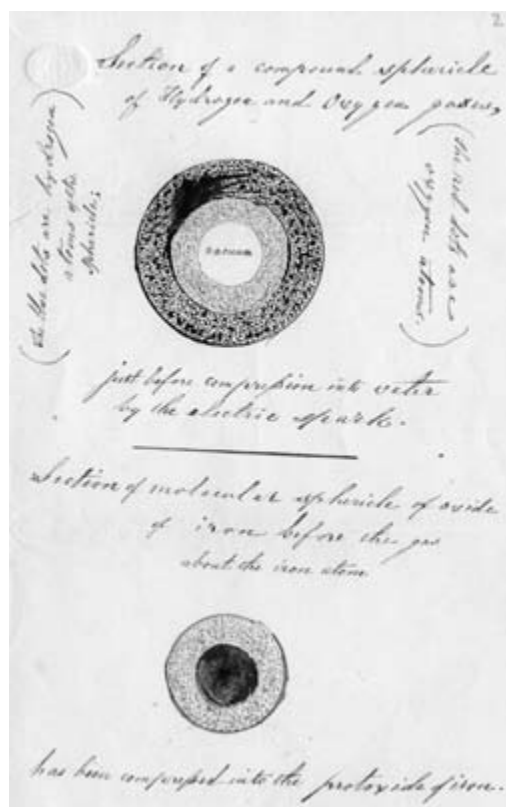 2
Section of a compound sphericle
of Hydrogen and Oxygen gasses,
(the blue dots are hydrogen
atoms of the
sphericle;
(the red dots are
oxygen atoms.)
just before compression into water
by the electric spark.
Section of molecular sphericle of oxide
of iron before the gas
about the iron atom
has been compressed into the protoxide of iron.